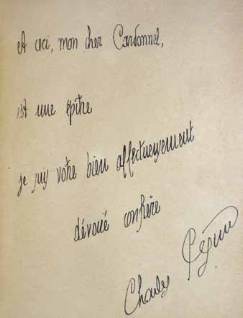 et ceci, mon cher Cardonnel,
est une épître
je suis votre bien affectueusement
dévoué confrère
Charles Péguy